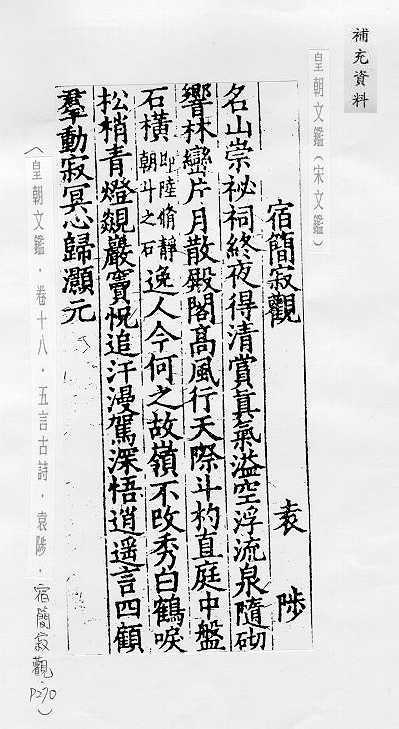 補充資料
皇朝文鑑(宋文鑑)
宿簡寂觀 袁陟
名山崇祕祠終夜得清賞真氣溢空浮流泉隨砌
響林巒片月散殿閣高風行天際斗杓直庭中盤
石橫即陸脩靜朝斗之石逸人今何之故嶺不改秀白鶴唳
松梢青燈覰巖竇怳追汗漫駕深悟逍遥言四顧
羣動寂冥心歸灝元
(皇朝文鑑·卷十八·五言古詩·袁陟·宿簡寂觀·P270)